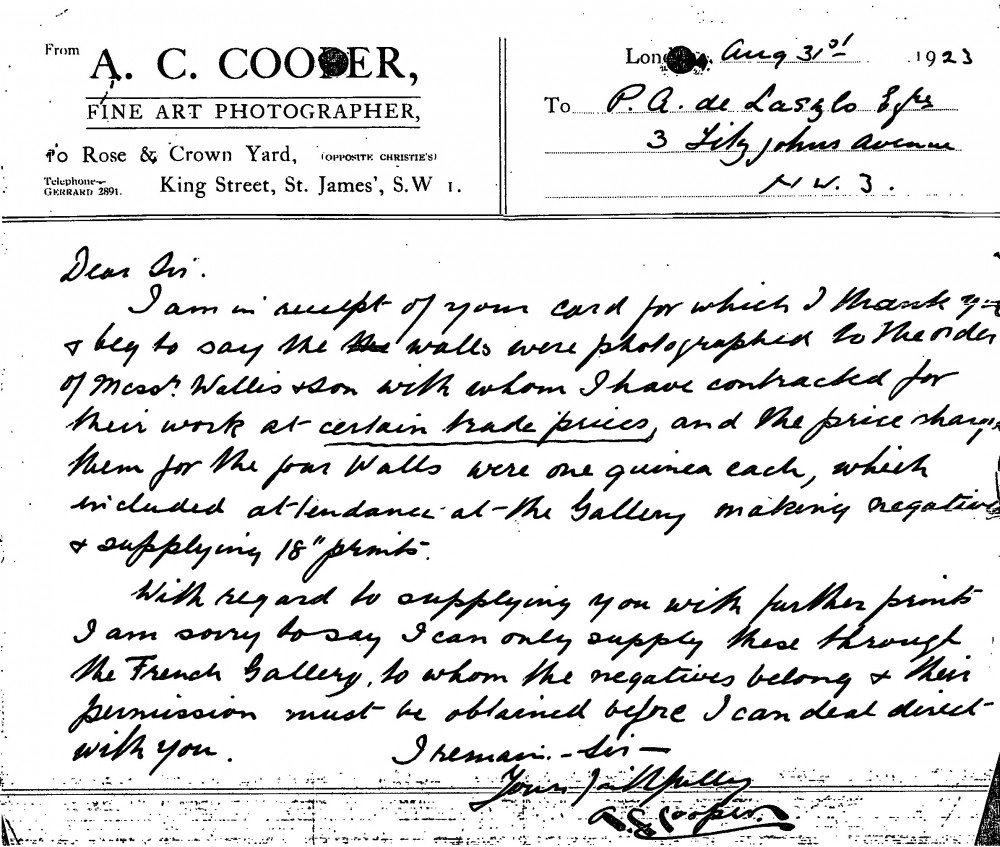 From A. C. COOPER,
FINE ART PHOTOGRAPHER,
Rose & Crown Yard, (OPPOSITE CHRISTIE'S)
Telephone—
GERRARD 2891.
King Street, St. James', S.W 1.
London, Aug 31st 1923
To P. A. de Laszlo Esqre
3 Fitzjohns Avenue
N W. 3.
Dear Sir.
I am in receipt of your card for which I thank you
& beg to say the the walls were photographed to the order
of Messrs. Wallis & Son with whom I have contracted for
their work at certain trade prices, and the price charged
them for the four Walls were one guinea each, which
included attendance at the Gallery making negatives
& supplying 18" prints.
With regard to supplying you with further prints
I am sorry to say I can only supply these through
the French Gallery, to whom the negatives belong & their
permission must be obtained before I can deal direct
with you. I remain – Sir –
Yours faithfully
A. C. Cooper.